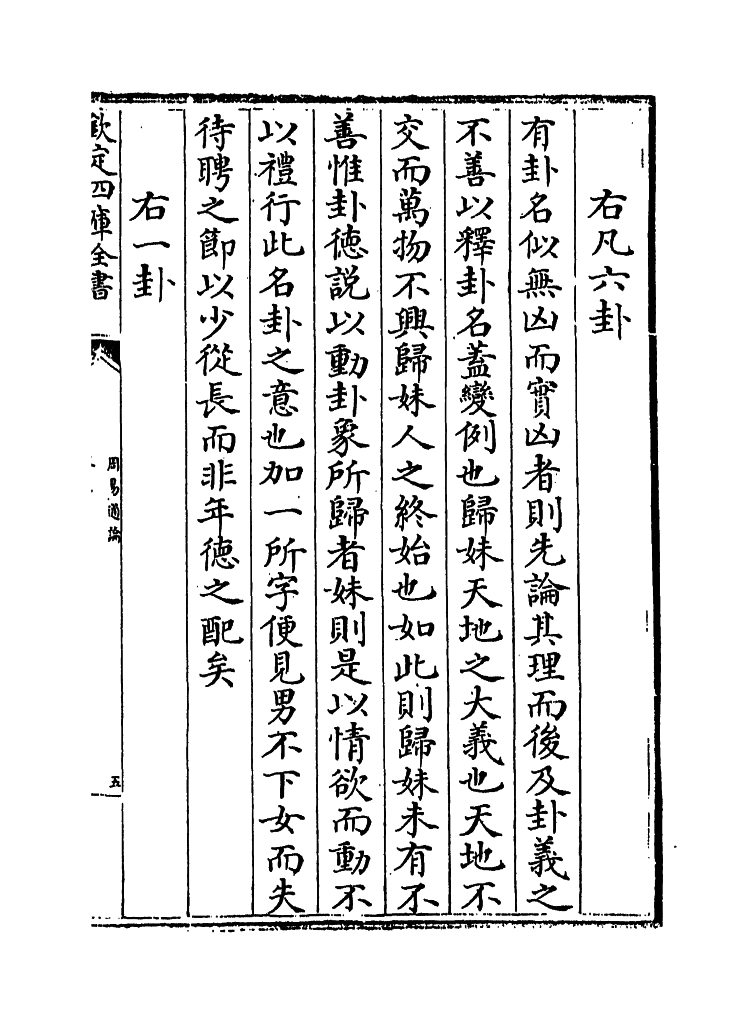 右凡六卦
有卦名似無凶而實凶者則先論其理而後及卦義之
不善以釋卦名蓋變例也歸妹天地之大義也天地不
交而萬物不興歸妹人之終始也如此則歸妹未有不
善惟卦德説以動卦象所歸者妹則是以情欲而動不
以禮行此名卦之意也加一所字便見男不下女而失
待聘之節以少從長而非年德之配矣
右一卦
欽定四庫全書
周易通論
五